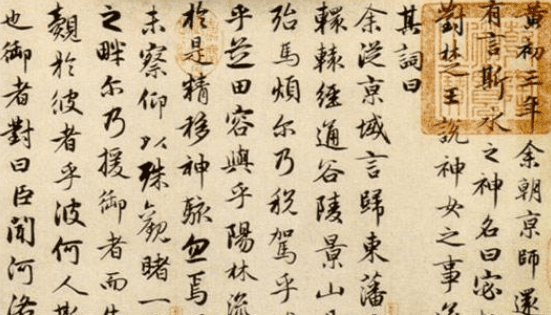 黄初三年余朝京師還
有言斯水之神名曰宓
對楚王說神女之事
其詞曰
余従京域言歸東藩
轘轅經通谷陵景山
殆馬煩尔乃稅駕乎
乎芝田容與乎陽林流
於是精移神駭忽焉
未察仰以殊觀睹一
之畔尔乃援御者而
覿於彼者乎彼何人斯
也御者對曰臣聞河洛